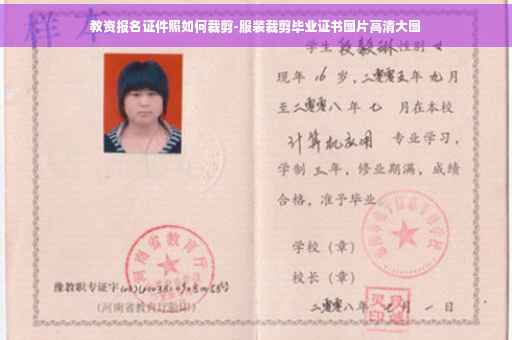 教资报名证件照如何裁剪-服装裁剪毕业证书图片高清大图
样本
学生段毅琳性别女
现年16岁，二零零五年九月
至二零零八年七月在本校
计算机应用 专业学习，
学制三年，修业期满，成绩
合格，准予毕业
学校（章）
校长（章）
二零零八年 月一日
河南省教育厅
豫教职专证字
（河南省教育厅监印）